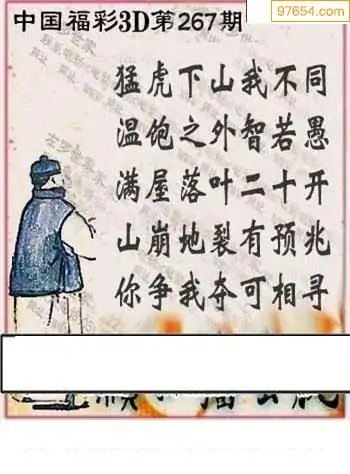 97654.com
中国福彩3D第267期
猛虎下山我不同
温饱之外智若愚
满屋落叶二十开
山崩地裂有预兆
你争我夺可相寻